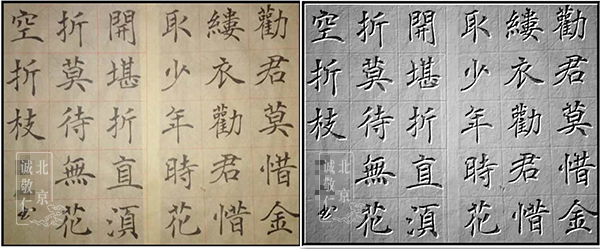 勸君莫惜金
縷衣勸君惜
耴少年時花
開堪折直湏
折莫待無花
空折枝
北京
诚敬仁
勸君莫惜金
縷衣勸君惜
耴少年時花
開堪折直湏
折莫待無花
空折枝
北京